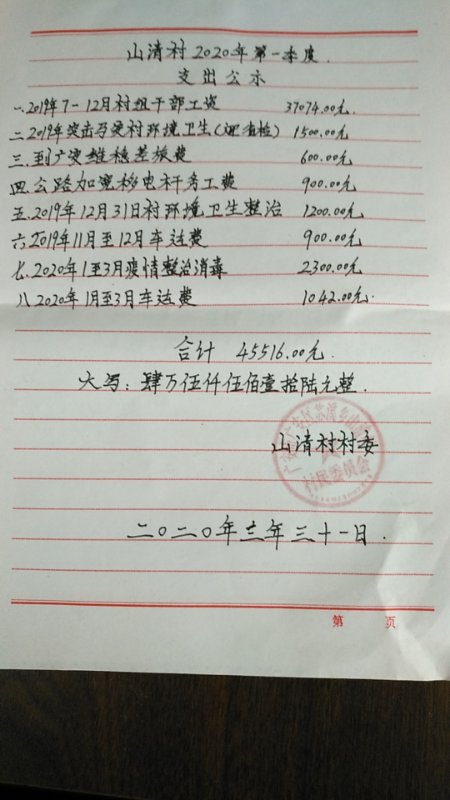 山清村2020年第一季度
支出公示
一.2019年7-12月村组干部工资 37074.00元.
二.2019年突击召突村环境卫生(迎省检) 1500.00元.
三.到广突维稳差旅费 600.00元.
四.公路加宽移电杆务工费 900.00元.
五.2019年12月31日村环境卫生整治 1200.00元.
六.2019年11月至12月车运费 900.00元.
七.2020年1至3月疫情整治消毒 2300.00元.
八.2020年1月至3月车运费 1042.00元.
合计 45516.00元.
大写:肆万伍仟伍佰壹拾陆元整.
山清村村委
村民委员会
二〇二〇年三年三十一日.
第 页